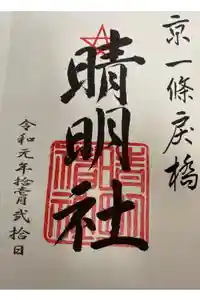 京一條戻橋
晴明社
令和元年拾壱月弐拾日